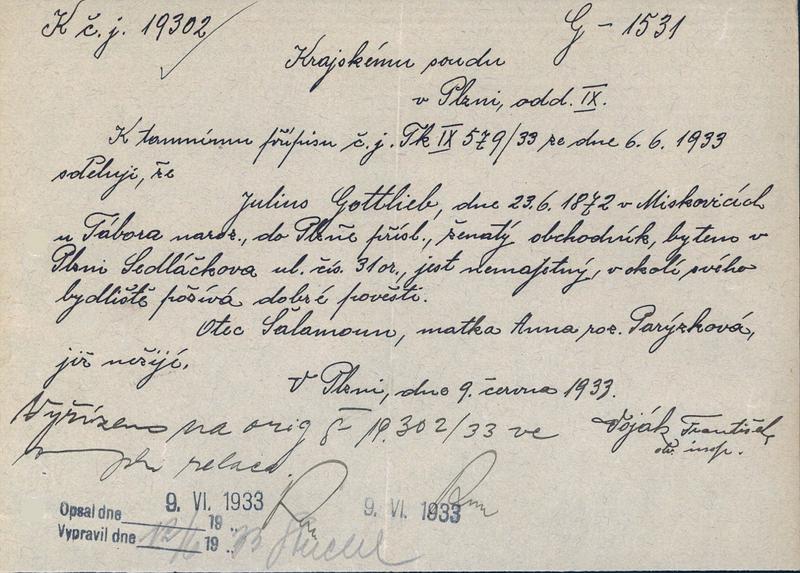 K č. j. 19302
G – 1531
Krajskému soudu
v Plzni, odd. IX.
K tamnímu přípisu č. j. Tk IX 579/33 ze dne 6. 6. 1933
sděluji, že
Julius Gottlieb, dne 23. 6. 1872 v Miskovicích
u Tábora naroz., do Plzně přísl., ženatý obchodník, bytem v
Plzni Sedláčkova ul. čís. 31 or., jest nemajetný, v okolí svého
bydliště požívá dobré pověsti.
Otec Šalamoun, matka Anna roz. Parýzková,
již nežijí.
V Plzni, dne 9. června 1933.
Vyřízeno na orig G 19.302/33 ve
relace.
Voják František,
insp.
9. VI. 1933
9. VI. 1933
Opsal dne 19 ..
Vypravil dne 12/6 19 ..